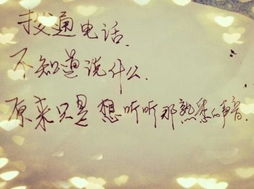 拨通电话.
不知道说什么.
原来只是想听听那熟悉的声音.